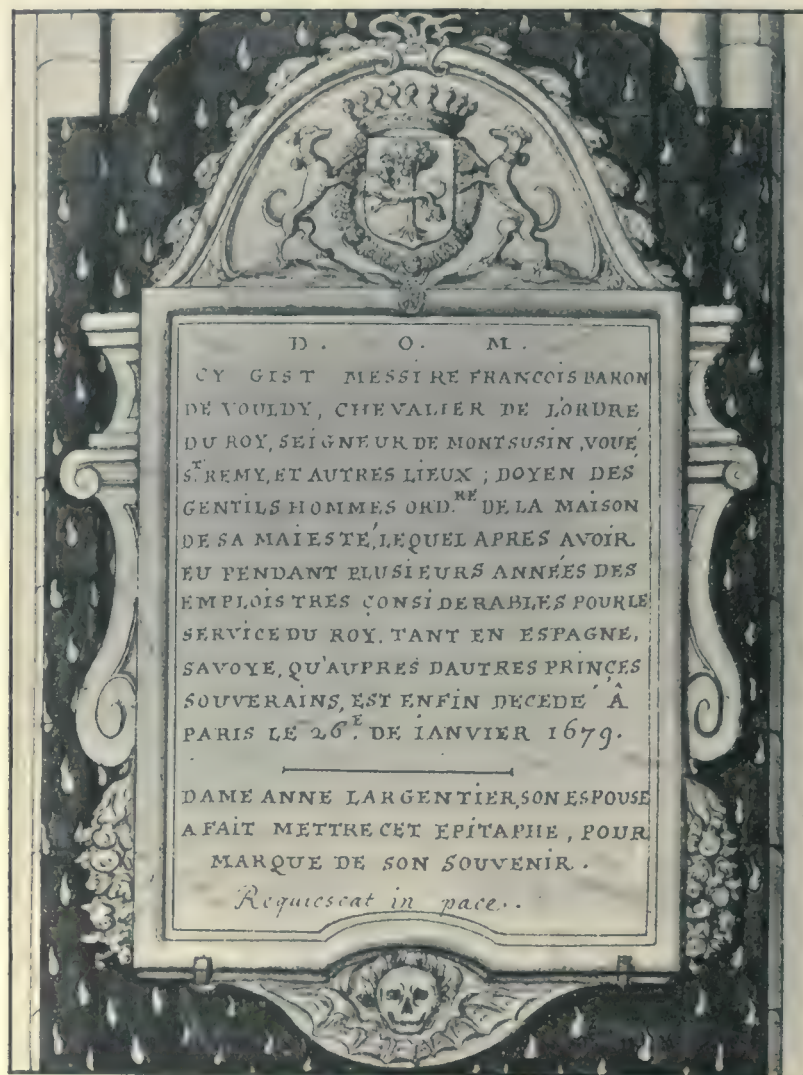 D. O. M.
CY GIST MESSIRE FRANCOIS BARON
DE VOULDY, CHEVALIER DE L'ORDRE
DU ROY, SEIGNEUR DE MONTSUSIN, VOUÉ,
S.T REMY, ET AUTRES LIEUX ; DOYEN DES
GENTILS HOMMES ORD.RE DE LA MAISON
DE SA MAIESTÉ, LEQUEL APRES AVOIR
EU PENDANT PLUSIEURS ANNÉES DES
EMPLOIS TRES CONSIDERABLES POUR LE
SERVICE DU ROY. TANT EN ESPAGNE,
SAVOYE, QU'AUPRES DAUTRES PRINCES
SOUVERAINS, EST ENFIN DECEDÉ Â
PARIS LE 26.E DE IANVIER 1679.
DAME ANNE LARGENTIER, SON ESPOUSE
A FAIT METTRE CET EPITAPHE, POUR
MARQUE DE SON SOUVENIR.
Requiescat in pace..